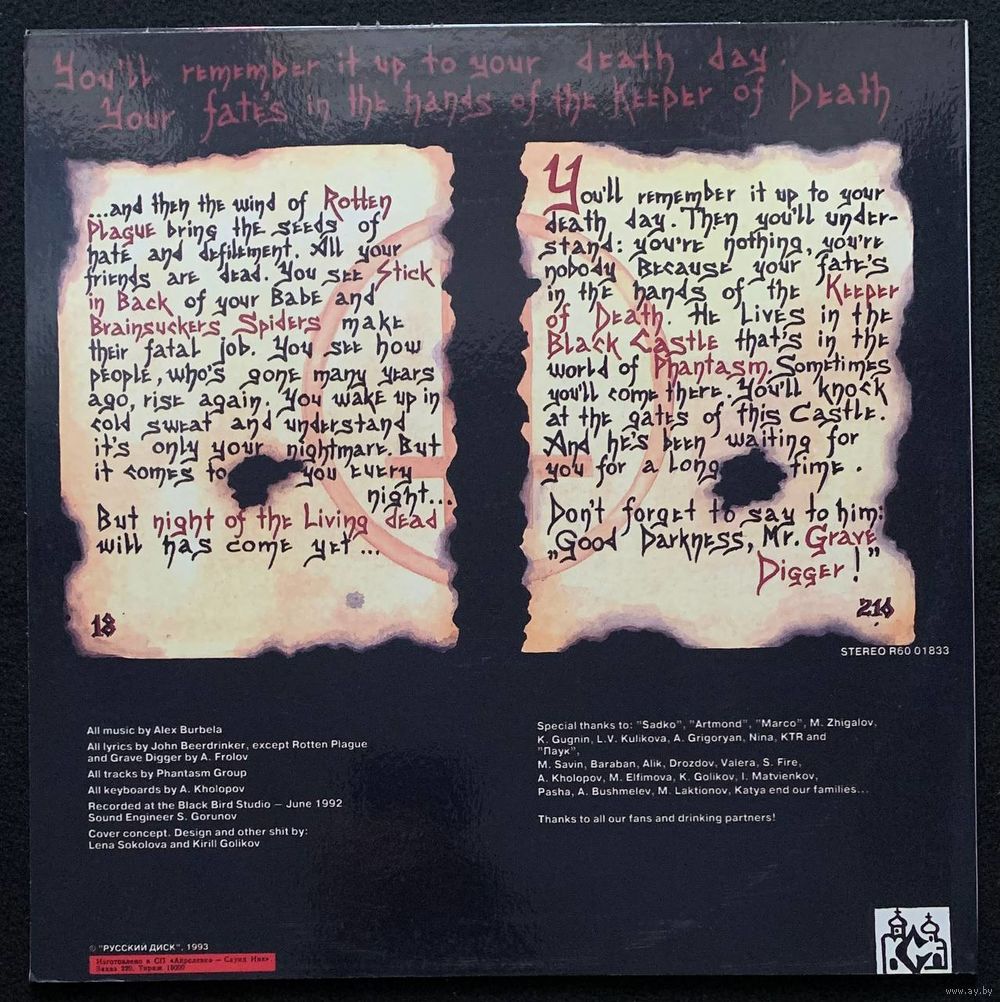 You'll remember it up to your death day.
Your fate's in the hands of the Keeper of Death
...and then the wind of Rotten
Plague bring the seeds of
hate and defilement. All your
friends are dead. You see Stick
in Back of your Babe and
Brainsuckers Spiders make
their fatal job. You see how
people, who's gone many years
ago, rise again. You wake up in
cold sweat and understand
it's only your nightmare. But
it comes to you every
night...
But night of the Living dead
will has come yet...
13
You'll remember it up to your
death day. Then you'll under-
stand: you're nothing, you're
nobody Because your fate's
in the hands of the Keeper
of Death. He Lives in the
Black Castle that's in the
world of Phantasm. Sometimes
you'll come there. You'll knock
at the gates of this Castle.
And he's been waiting for
you for a long time.
Don't forget to say to him:
„Good Darkness, Mr. Grave
Digger!"
216
STEREO R60 01833
All music by Alex Burbela
All lyrics by John Beerdrinker, except Rotten Plague
and Grave Digger by A. Frolov
All tracks by Phantasm Group
All keyboards by A. Kholopov
Recorded at the Black Bird Studio — June 1992
Sound Engineer S. Gorunov
Cover concept. Design and other shit by:
Lena Sokolova and Kirill Golikov
Special thanks to: "Sadko", "Artmond", "Marco", M. Zhigalov,
K. Gugnin, L.V. Kulikova, A. Grigoryan, Nina, KTR and
"Паук",
M. Savin, Baraban, Alik, Drozdov, Valera, S. Fire,
A. Kholopov, M. Elfimova, K. Golikov, I. Matvienkov,
Pasha, A. Bushmelev, M. Laktionov, Katya end our families...
Thanks to all our fans and drinking partners!
© "РУССКИЙ ДИСК", 1993
Изготовлено в СП «Апрелевка — Саунд Инк»
Заказ 220. Тираж 10000
www.ay.by